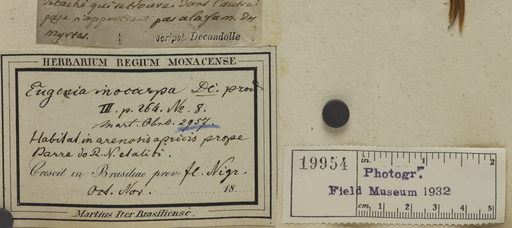 détaché qui se trouve dans l'autre
page n'appartient pas a la fam. des
myrtes.
scripst. Decandolle
HERBARIUM REGIUM MONACENSE
Eugenia inocarpa DC. prod.
III. p. 264. No. 8.
Mart. Obs. 2957.
Habitat in arenosis apricis prope
Barra do R. N. et alibi.
Crescit in Brasiliae prov. fl. Nigr.
Oct. Nov. 18
Martius Iter Brasiliense.
19954
in. 1 2
Photogr.
Field Museum 1932
cm. 1 2 3 4 5